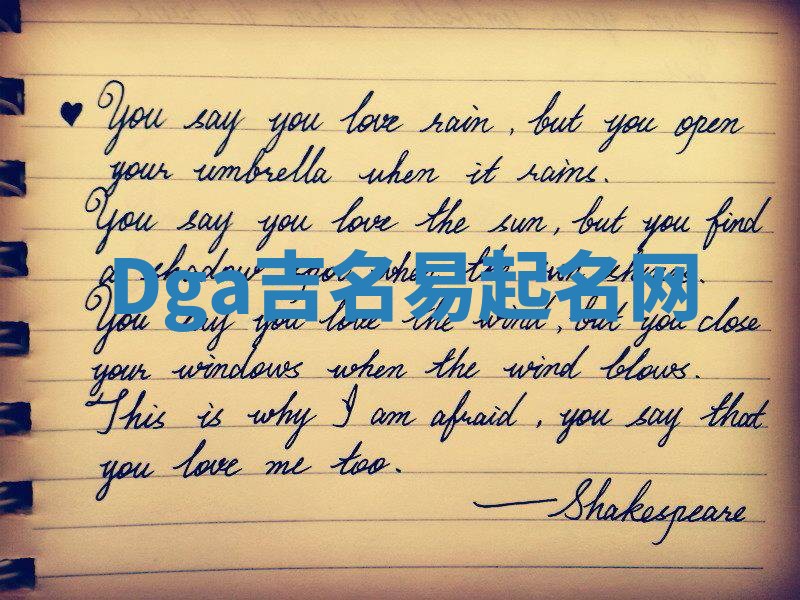 ♥ You say you love rain, but you open
your umbrella when it rains.
You say you love the sun, but you find
a shadow spot when the sun shines.
Dga吉名易起名网
You say you love the wind, but you close
your windows when the wind blows.
This is why I am afraid, you say that
you love me too.
— Shakespeare